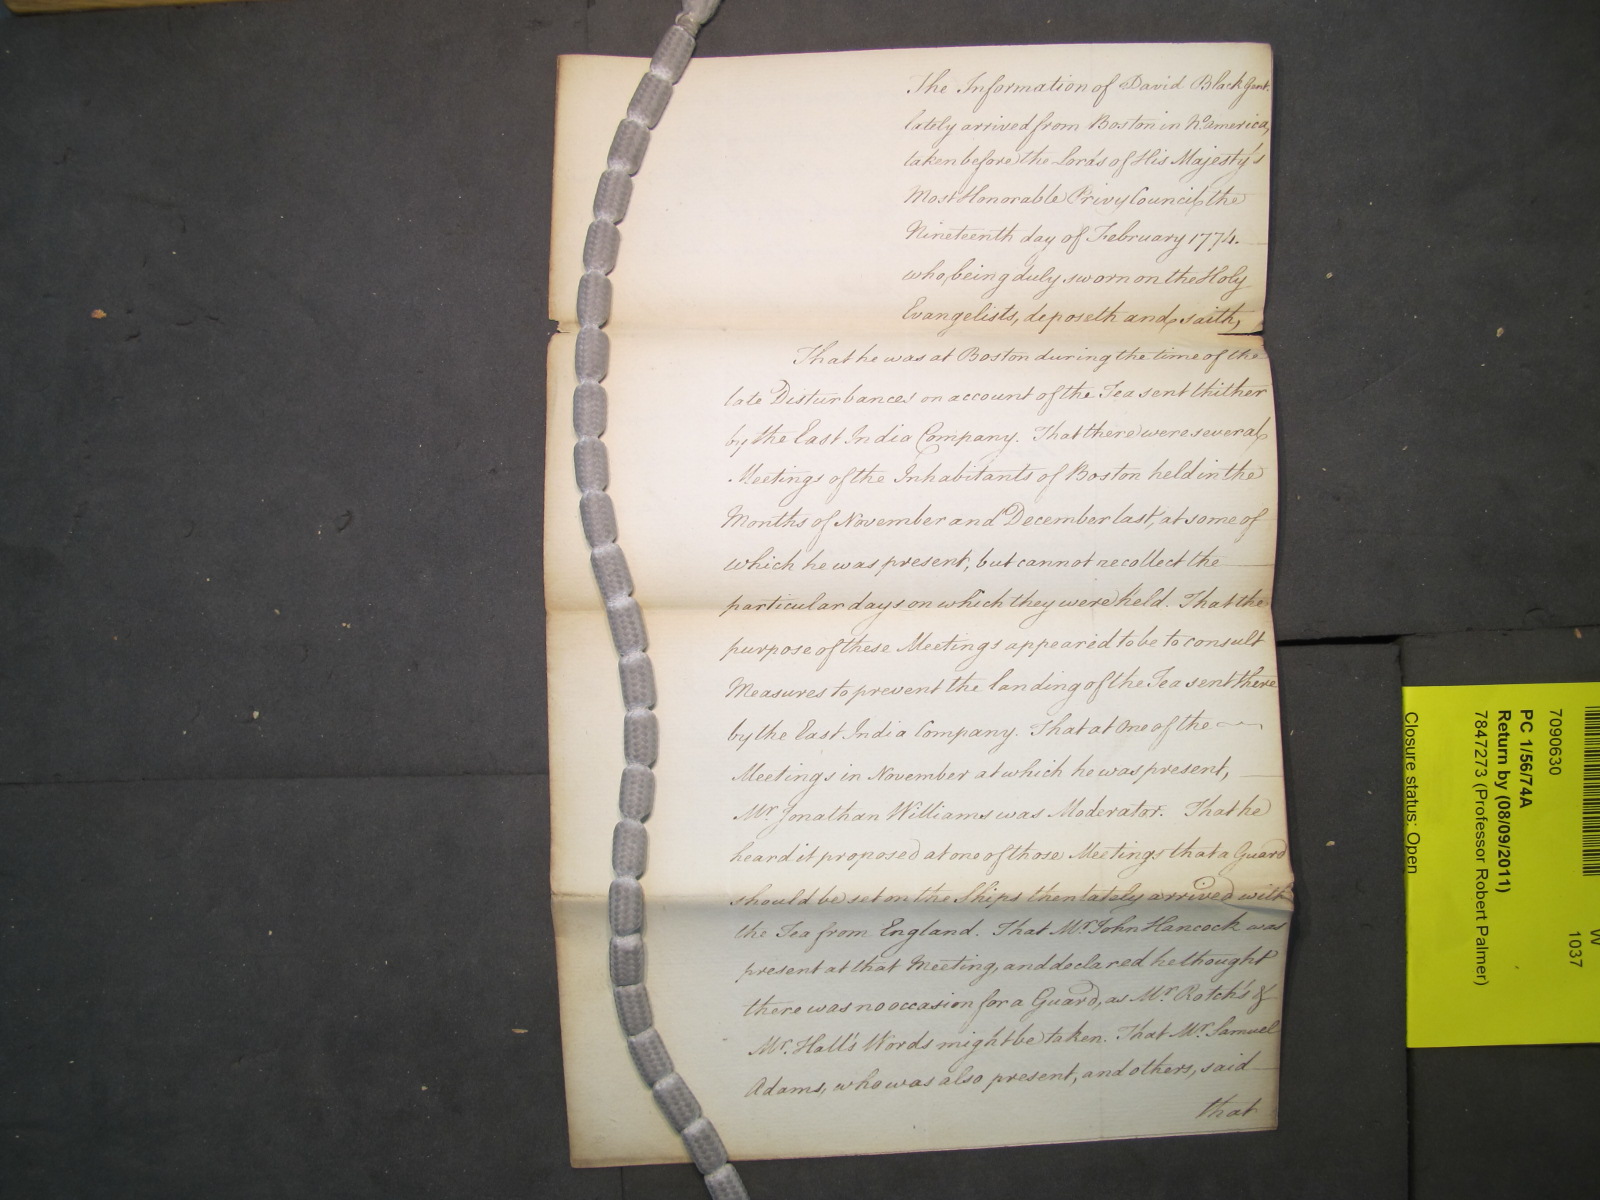 The Information of David Black Gent.
lately arrived from Boston in No. America,
taken before the Lords of His Majesty's
Most Honorable Privy Council, the
Nineteenth day of February 1774.
who, being duly sworn on the Holy
Evangelists, deposeth and saith,
That he was at Boston during the time of the
late Disturbances on account of the Tea sent thither
by the East India Company. That there were several
Meetings of the Inhabitants of Boston held in the
Months of November and December last, at some of
which he was present, but cannot recollect the
particular days on which they were held. That the
purpose of these Meetings appeared to be to consult
Measures to prevent the landing of the Tea sent there
by the East India Company. That at One of the
Meetings in November at which he was present,
Mr. Jonathan Williams was Moderator. That he
heard it proposed at one of those Meetings that a Guard
should be set on the Ships then lately arrived with
the Tea from England. That Mr. John Hancock was
present at that Meeting, and declared he thought
there was no occasion for a Guard, as Mr. Rotch's &
Mr. Hall's Words might be taken. That Mr. Samuel
Adams, who was also present, and others, said
that
W
1037
7090630
PC 1/56/74A
Return by (08/09/2011)
7847273 (Professor Robert Palmer)
Closure status: Open